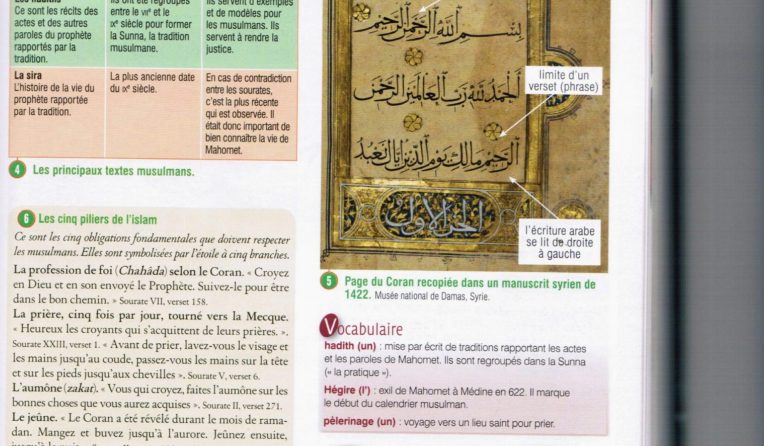 Ce sont les récits des
actes et des autres
paroles du prophète
rapportés par la
tradition.
ils ont été regroupés
entre le VIIe et le
IXe siècle pour former
la Sunna, la tradition
musulmane.
Ils servent d'exemples
et de modèles pour
les musulmans. Ils
servent à rendre la
justice.
La sira
L'histoire de la vie du
prophète rapportée
par la tradition.
La plus ancienne date
du IXe siècle.
En cas de contradiction
entre les sourates,
c'est la plus récente
qui est observée. Il
était donc important de
bien connaître la vie de
Mahomet.
4 Les principaux textes musulmans.
6 Les cinq piliers de l'islam
Ce sont les cinq obligations fondamentales que doivent respecter
les musulmans. Elles sont symbolisées par l'étoile à cinq branches.
La profession de foi (Chahâda) selon le Coran. « Croyez
en Dieu et en son envoyé le Prophète. Suivez-le pour être
dans le bon chemin. » Sourate VII, verset 158.
La prière, cinq fois par jour, tourné vers la Mecque.
« Heureux les croyants qui s'acquittent de leurs prières. ».
Sourate XXIII, verset 1. « Avant de prier, lavez-vous le visage et
les mains jusqu'au coude, passez-vous les mains sur la tête
et sur les pieds jusqu'aux chevilles ». Sourate V, verset 6.
L'aumône (zakat). « Vous qui croyez, faites l'aumône sur les
bonnes choses que vous aurez acquises ». Sourate II, verset 271.
Le jeûne. « Le Coran a été révélé durant le mois de rama-
dan. Mangez et buvez jusqu'à l'aurore. Jeûnez ensuite,
بسم الله الرحمن الرحيم
الحمد لله رب العالمين الرحمن
الرحيم مالك يوم الدين إياك نعبد
limite d'un
verset (phrase)
l'écriture arabe
se lit de droite
à gauche
5 Page du Coran recopiée dans un manuscrit syrien de
1422. Musée national de Damas, Syrie.
Vocabulaire
hadith (un) : mise par écrit de traditions rapportant les actes
et les paroles de Mahomet. Ils sont regroupés dans la Sunna
(« la pratique »).
Hégire (l') : exil de Mahomet à Médine en 622. Il marque
le début du calendrier musulman.
pèlerinage (un) : voyage vers un lieu saint pour prier.